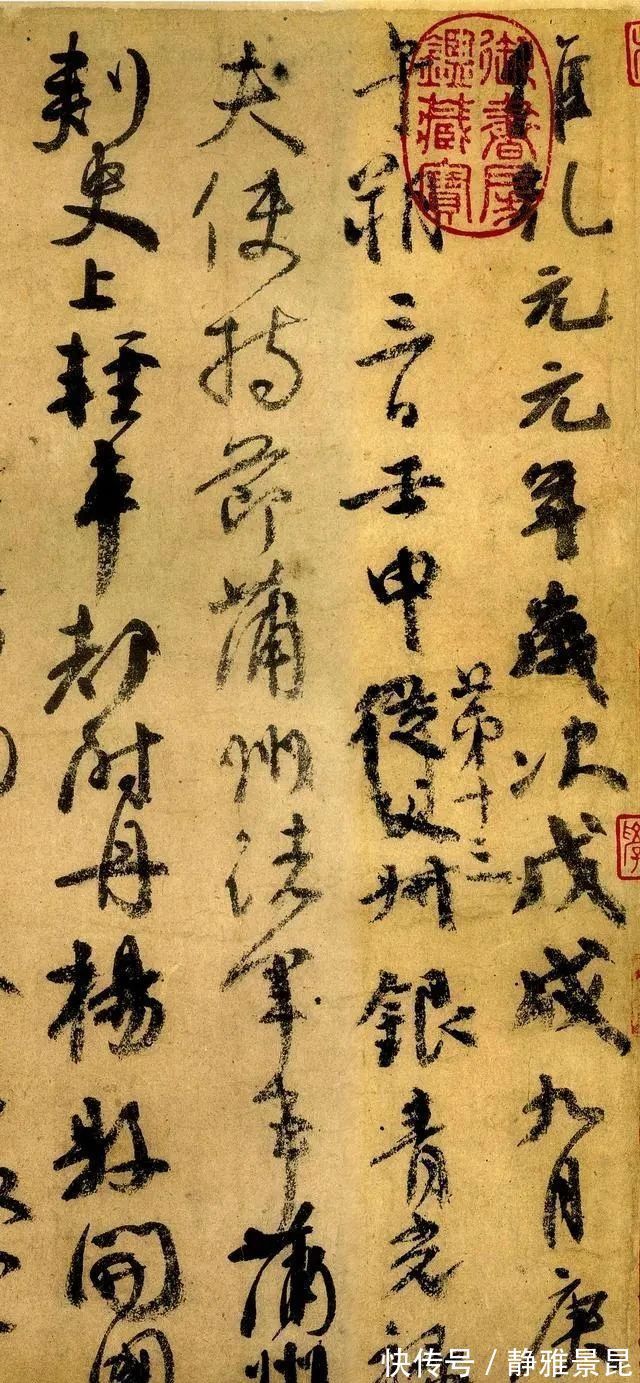 維乾元元年歲次戊戌九月庚
午朔三日壬申從父叔銀青光祿
第十三
夫使持節蒲州諸軍事蒲州
刺史上輕車都尉丹楊縣開國
御書房鑑藏寶
快传号／静雅景昆